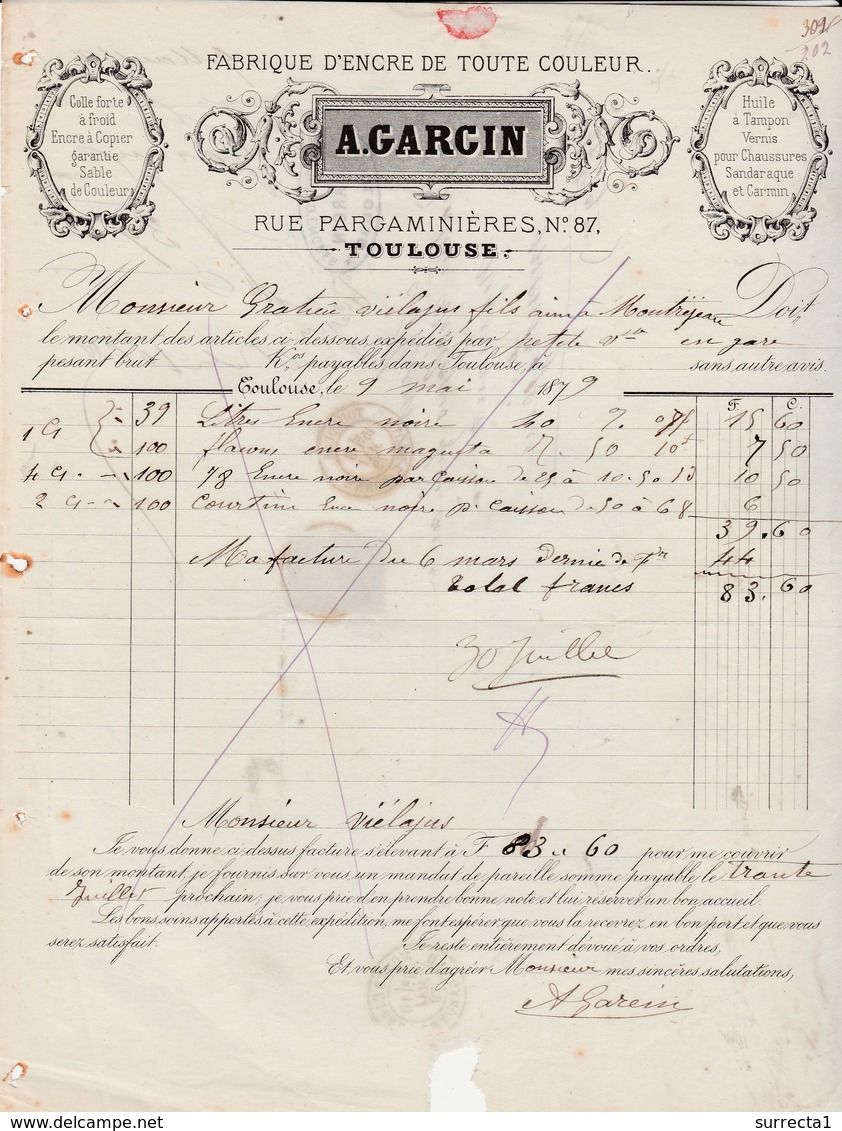 302
302
FABRIQUE D'ENCRE DE TOUTE COULEUR.
Colle forte
à froid
Encre à Copier
garantie
Sable
de Couleur
A.GARCIN
Huile
à Tampon
Vernis
pour Chaussures
Sandaraque
et Carmin
RUE PARGAMINIÈRES, No. 87,
TOULOUSE.
Monsieur viélajus fils ainé à Montréjeau Doit,
le montant des articles ci-dessous, expédiés par petite vsse en gare
pesant brut Kos payables dans Toulouse, à sans autre avis.
Toulouse, le 9 mai 1879
F. C.
1 Cs 39 Litres Encre noire 40 % 15 60
100 flacons encre magenta 7. 50 7 50
4 Cs 100 1/8 Encre noire par Caisson de 25 à 10 50 10 50
2 Cs 100 Courtine noire p. Caisson de 50 à 6 6
39. 60
Ma facture du 6 mars Dernier de 44
Total francs 83. 60
30 Juillet
Monsieur Viélajus
Je vous donne ci-dessus facture s'élevant à F 83. 60 pour me couvrir
de son montant, je fournis sur vous un mandat de pareille somme payable le trante
Juillet prochain; je vous prie d'en prendre bonne note et lui réserver un bon accueil.
Les bons soins apportés à cette expédition, me font espérer que vous la recevrez en bon port et que vous
serez satisfait. Je reste entièrement dévoué à vos ordres,
Et vous prie d'agréer Monsieur mes sincères salutations,
A Garcin
surrecta1